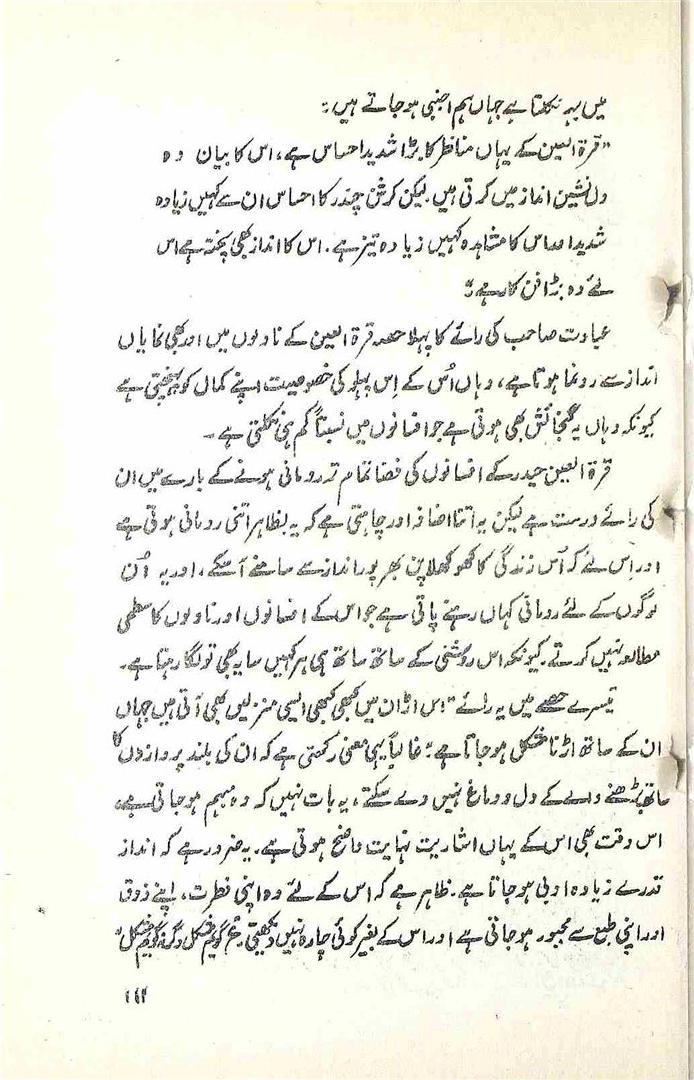 میں پہ نکلتا ہے جہاں ہم اجنبی ہو جاتے ہیں :
”قرۃ العین کے یہاں مناظر کا بڑا شدید احساس ہے، اس کا بیان وہ
دل نشین انداز میں کرتی ہیں. لیکن کرشن چندر کا احساس ان سے کہیں زیادہ
شدید اور اس کا مشاہدہ کہیں زیادہ تیز ہے. اس کا انداز بھی پختہ ہے اس
لئے وہ بڑا فن کار ہے“
عبادت صاحب کی رائے کا پہلا حصہ قرۃ العین کے ناولوں میں اور بھی نمایاں
انداز سے رونما ہوتا ہے، وہاں اُس کے اِس پہلو کی خصوصیت اپنے کمال کو پہنچتی ہے
کیونکہ وہاں یہ گنجائش بھی ہوتی ہے جو افسانوں میں نسبتاً کم ہی نکلتی ہے ۔
قرۃ العین حیدر کے افسانوں کی فضا تمام تر رومانی ہونے کے بارے میں ان
کی رائے درست ہے لیکن یہ اتنا اضافہ اور چاہتی ہے کہ یہ بظاہر اتنی رومانی ہوتی ہے
اور اِس لئے کہ اس زندگی کا کھوکھلا پن بھرپور انداز سے سامنے آسکے ، اور یہ اُن
لوگوں کے لئے رومانی کہاں رہنے پاتی ہے جو اس کے افسانوں اور ناولوں کا سطحی
مطالعہ نہیں کرتے. کیونکہ اس روشنی کے ساتھ ساتھ ہی ہر کہیں سایہ بھی تو لگا رہتا ہے ۔
تیسرے حصے میں یہ رائے ”اس اڑان میں کبھی کبھی ایسی منزلیں بھی آتی ہیں جہاں
ان کے ساتھ اڑنا مشکل ہو جاتا ہے“ غالباً یہی معنی رکھتی ہے کہ ان کی بلند پروازوں کا
ساتھ پڑھنے والے کے دل و دماغ نہیں دے سکتے ، یہ بات نہیں کہ وہ مبہم ہو جاتی ہے،
اس وقت بھی اس کے یہاں اشاریت نہایت واضح ہوتی ہے. یہ ضرور ہے کہ انداز
قدرے زیادہ ادبی ہو جاتا ہے. ظاہر ہے کہ اس کے لئے وہ اپنی فطرت، اپنے ذوق
اور اپنی طبع سے مجبور ہو جاتی ہے اور اس کے بغیر کوئی چارہ نہیں دیکھتی، ع گویم مشکل وگرنہ گویم مشکل“